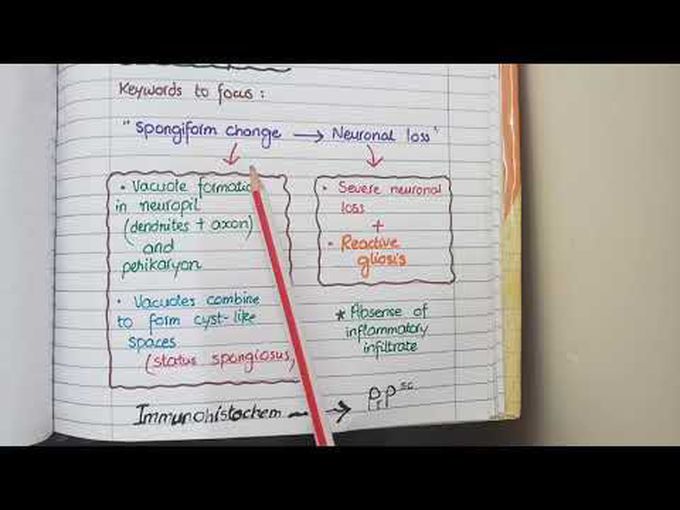 Keywords to focus :
"Spongiform change → Neuronal loss"
• Vacuole formatio
in neuropil
(dendrites + axon)
and
perikaryon
• Vacuoles combine
to form cyst-like
spaces
(status spongiosus)
• Severe neuronal
loss
+
• Reactive
gliosis
* Absense of
inflammatory
infiltrate
Immunohistochem → PrP^sc